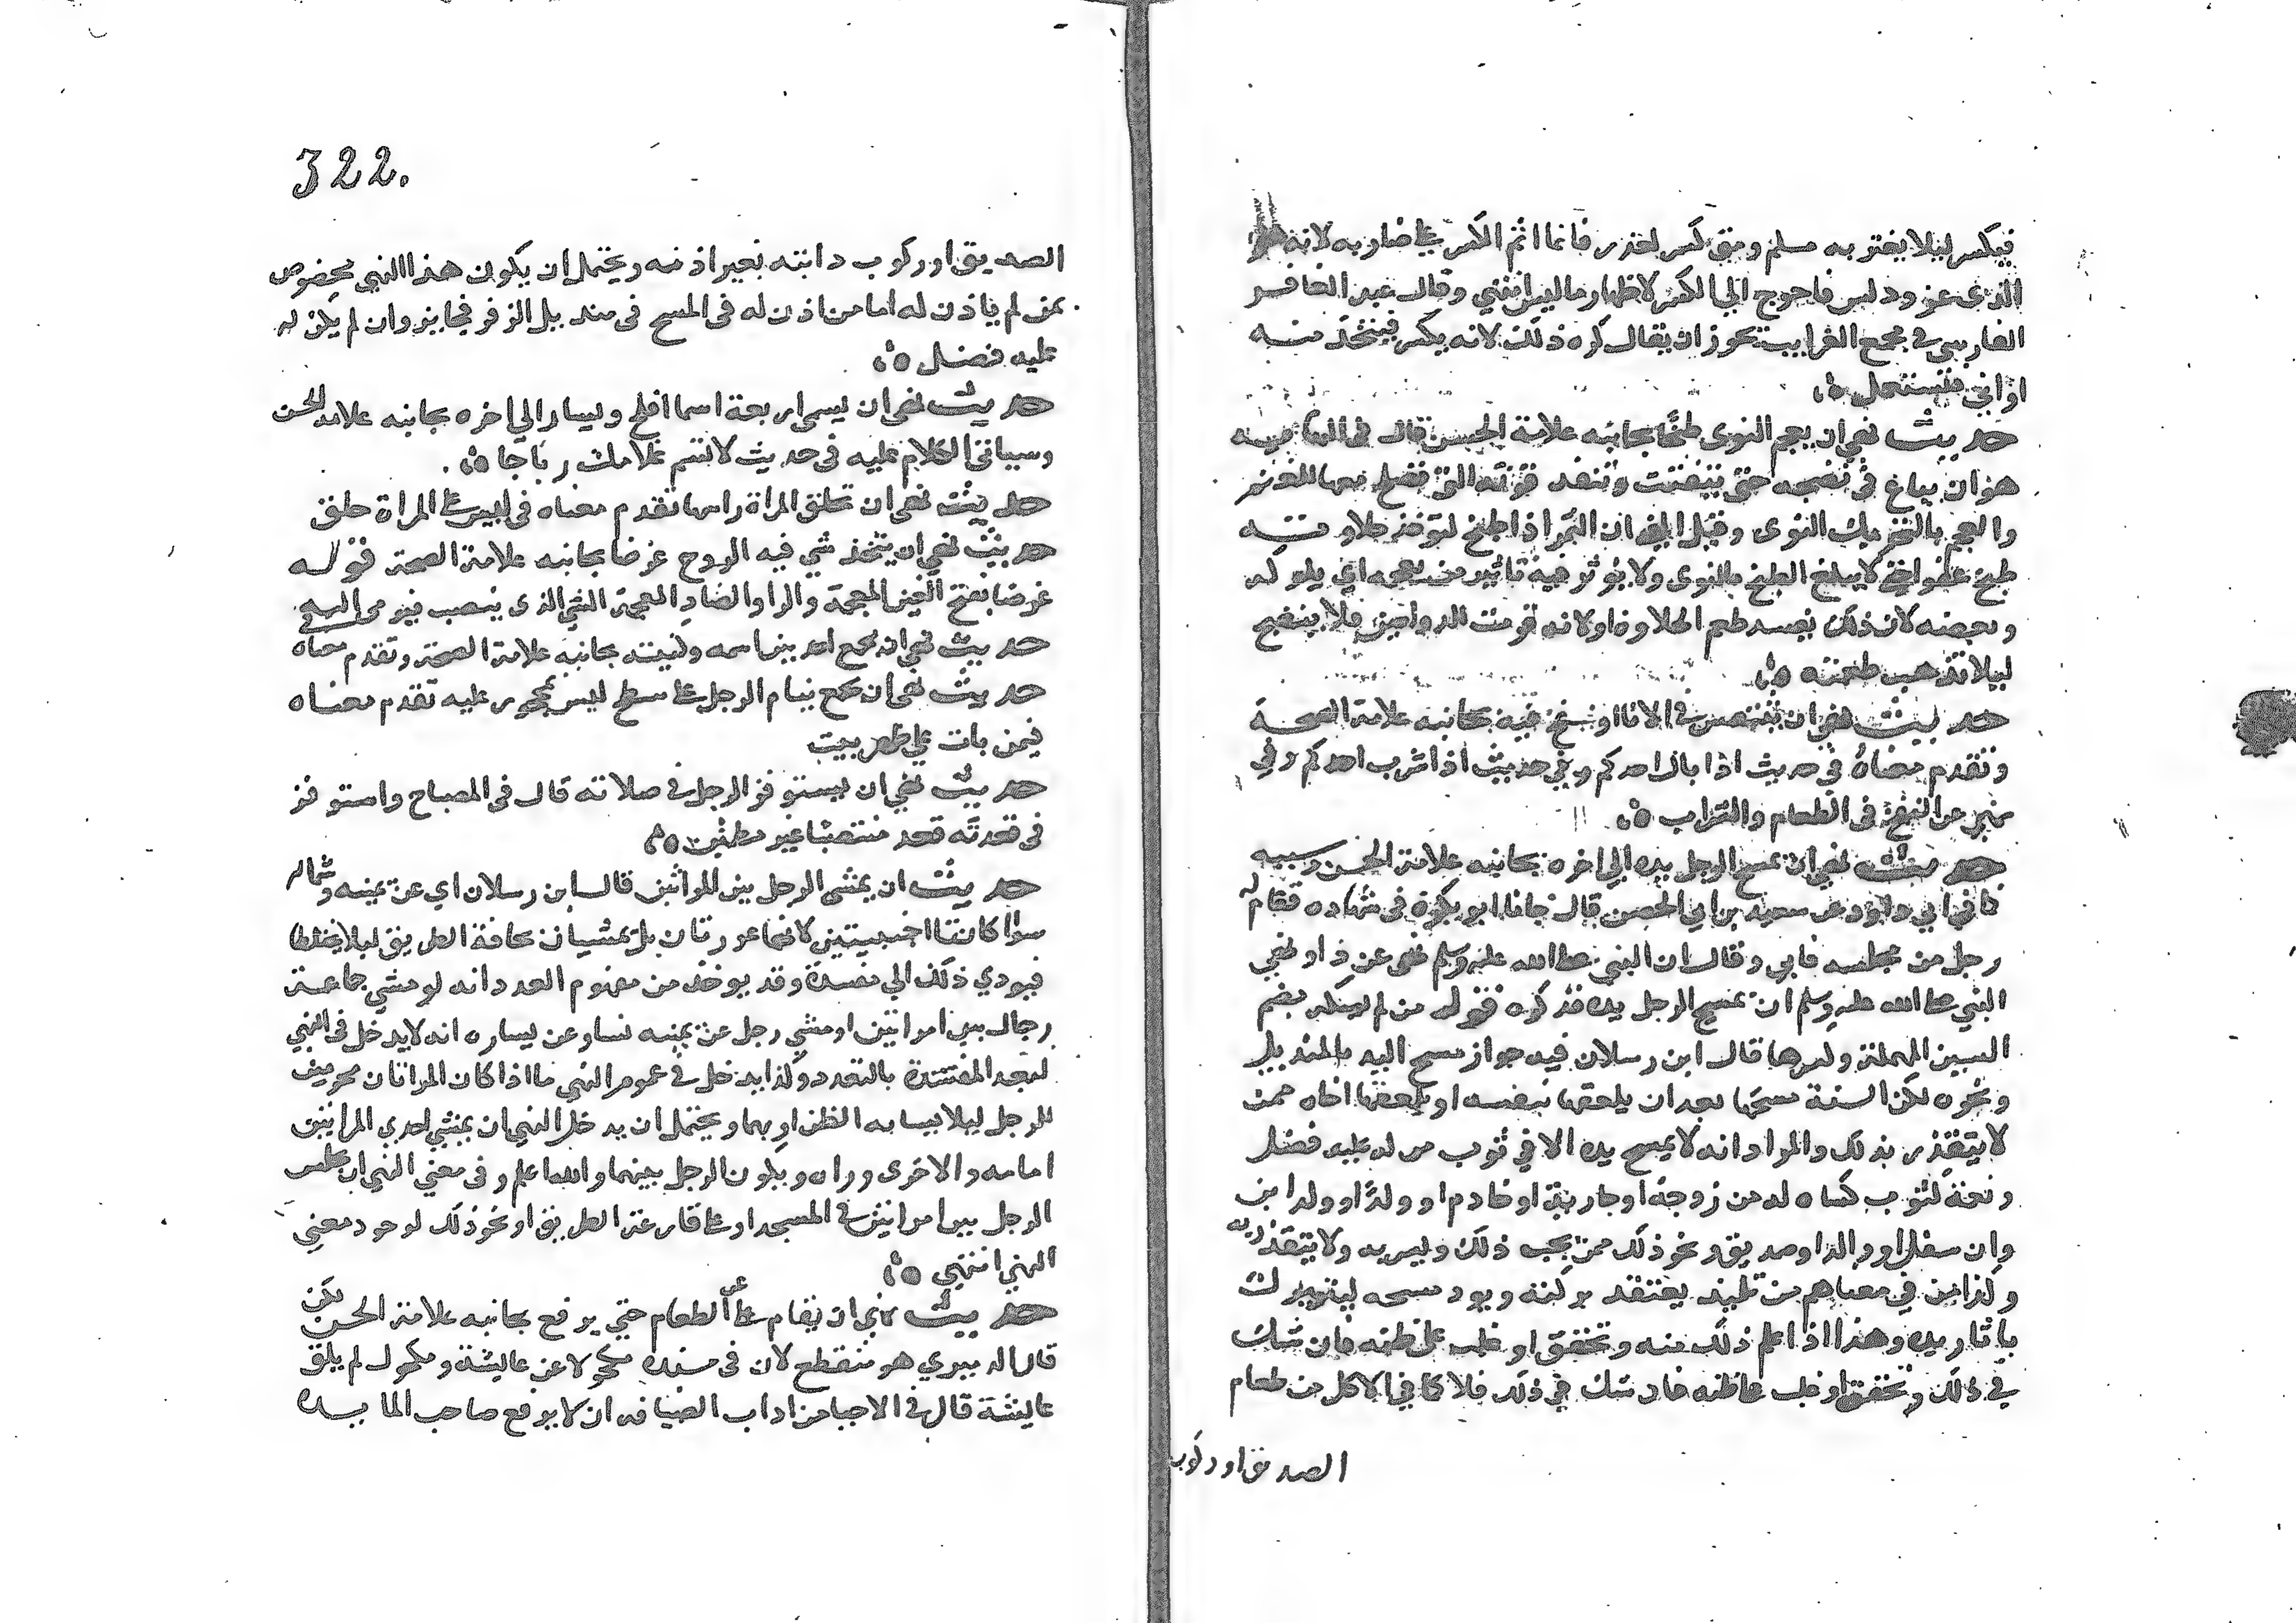 فيكسر ليلا يغتر به مسلم ومتى كسر لعذر فانما اثم الكسر على ضاربه لانه هو
الذي غر ودلس فاحوج الى الكسر لاظهار ما ليس انتهي وقال عبد الغافر
الفارسي في مجمع الغرايب يحوز ان يقال كره ذلك لانه يكسر فيتخذ منه
اواني فتستعمل ٥
حديث نهي ان يعجم النوى طبخا بجانبه علامة الحسن قال في النهاية
هو ان يبالغ في نضجه حتى يتفتت وتفسد قوته التي تصلح معها للغنم
والعجم بالتحريك النوى وقيل المعنى ان التمر اذا طبخ لتوخذ حلاوته
طبخ عفوا حتى لا يبلغ الطبخ بالنوى ولا يوثر فيه تاثير من يعجمه اي يلوكه
ويعضه لان ذلك يفسد طعم الحلاوة او لانه قوت الدواجن فلا ينضج
ليلا تذهب طعمته ٥
حديث نهي ان يتنفس في الانا او ينفخ فيه بجانبه علامة الصحة
وتقدم معناه في حديث اذا بال احدكم وفي حديث اذا شرب احدكم وفي
نهي عن النفخ في الطعام والشراب ٥
حديث نهي ان يمسح الرجل يده الى اخره بجانبه علامة الحسن وسببه
كما في ابي داود عن سعيد بن ابي الحسن قال جانا ابو بكرة في شهادة فقام له
رجل من مجلسه فابى وقال ان النبي صلى الله عليه وسلم نهى عن ذا ونهي
النبي صلى الله عليه وسلم ان يمسح الرجل يده فذكره قوله من لم يكسه بضم
السين المهملة وكسرها قال ابن رسلان فيه جواز مسح اليد بالمنديل
ونحوه لكن السنة مسحها بعد ان يلعقها بنفسه او يلعقها اخاه ممن
لا يتقذر بذلك والمراد انه لا يمسح يده الا في ثوب من له عليه فضل
ونعمة لثوب كساه له من زوجة او جارية او خادم او ولد او ولد ابن
وان سفل او والد او صديق ونحو ذلك ممن يحب ذلك ويسر به ولا يتقذر به
وكذا من في معناهم من تلميذ يعتقد بركته ويود مسحه ليتبرك
باثار يده وهذا اذا علم ذلك منه وتحقق او غلب على ظنه فان شك
في ذلك وتحقق او غلب على ظنه فان شك في ذلك فلا كما في الاكل من طعام
الصديق او ركوب
322.
الصديق او ركوب دابته بغير اذنه ويحتمل ان يكون هذا النهي مخصوص
بمن لم ياذن له اما من اذن له في المسح في منديل الزفر فجايز وان لم يكن له
عليه فضل ٥
حديث نهى ان يسمى اربعة اسما افلح ويسار الى اخره بجانبه علامة الحسن
وسياتي الكلام عليه في حديث لا تسم غلامك رباحا ٥
حديث نهى ان تحلق المراة راسها تقدم معناه في ليس على المراة حلق
حديث نهي ان يتخذ شي فيه الروح غرضا بجانبه علامة الصحة قوله
غرضا بفتح الغين المعجمة والرا والضاد المعجمة الشي الذي ينصب فيرمى اليه
حديث نهي ان يجمع احد بين اسمه وكنيته بجانبه علامة الصحة وتقدم معناه
حديث نهى ان يجمع ينام الرجل على سطح ليس بمحجور عليه تقدم معناه
فيمن بات على ظهر بيت
حديث نهي ان يستوفز الرجل في صلاته قال في المصباح واستوفز
في قعدته قعد منتصبا غير مطمئن ٥
حديث ان يمشى الرجل بين المراتين قال ابن رسلان اي عن يمينه وشماله
سوا كانتا اجنبيتين لانهما عورتان بل يمشيان بحافة الطريق ليلا يختلطا
فيودي ذلك الي مفسدة وقد يوخذ من مفهوم العدد انه لو مشي جماعة
رجال بين امراتين او مشي رجل عن يمينه نسا وعن يساره انه لا يدخل في النهي
لبعد المفسدة بالتعدد وكذا يدخل في عموم النهي ما اذا كان المراتان محرمين
للرجل ليلا يسا به الظن او بهما ويحتمل ان يدخل النهي ان يمشي احدي المراتين
امامه والاخرى وراه ويكون الرجل بينهما والله اعلم وفي معني النهي ان يجلس
الرجل بين امراتين في المسجد او على قارعة الطريق او نحو ذلك لوجود معني
النهي انتهي ٥
حديث نهي ان يقام على عن الطعام حتي يرفع بجانبه علامة الحسن لكن
قال الدميري هو منقطع لان في سنده مكحولا عن عايشة ومكحول لم يلق
عايشة قال في الاحيا من اداب الضيافه ان لا يرفع صاحب المايده